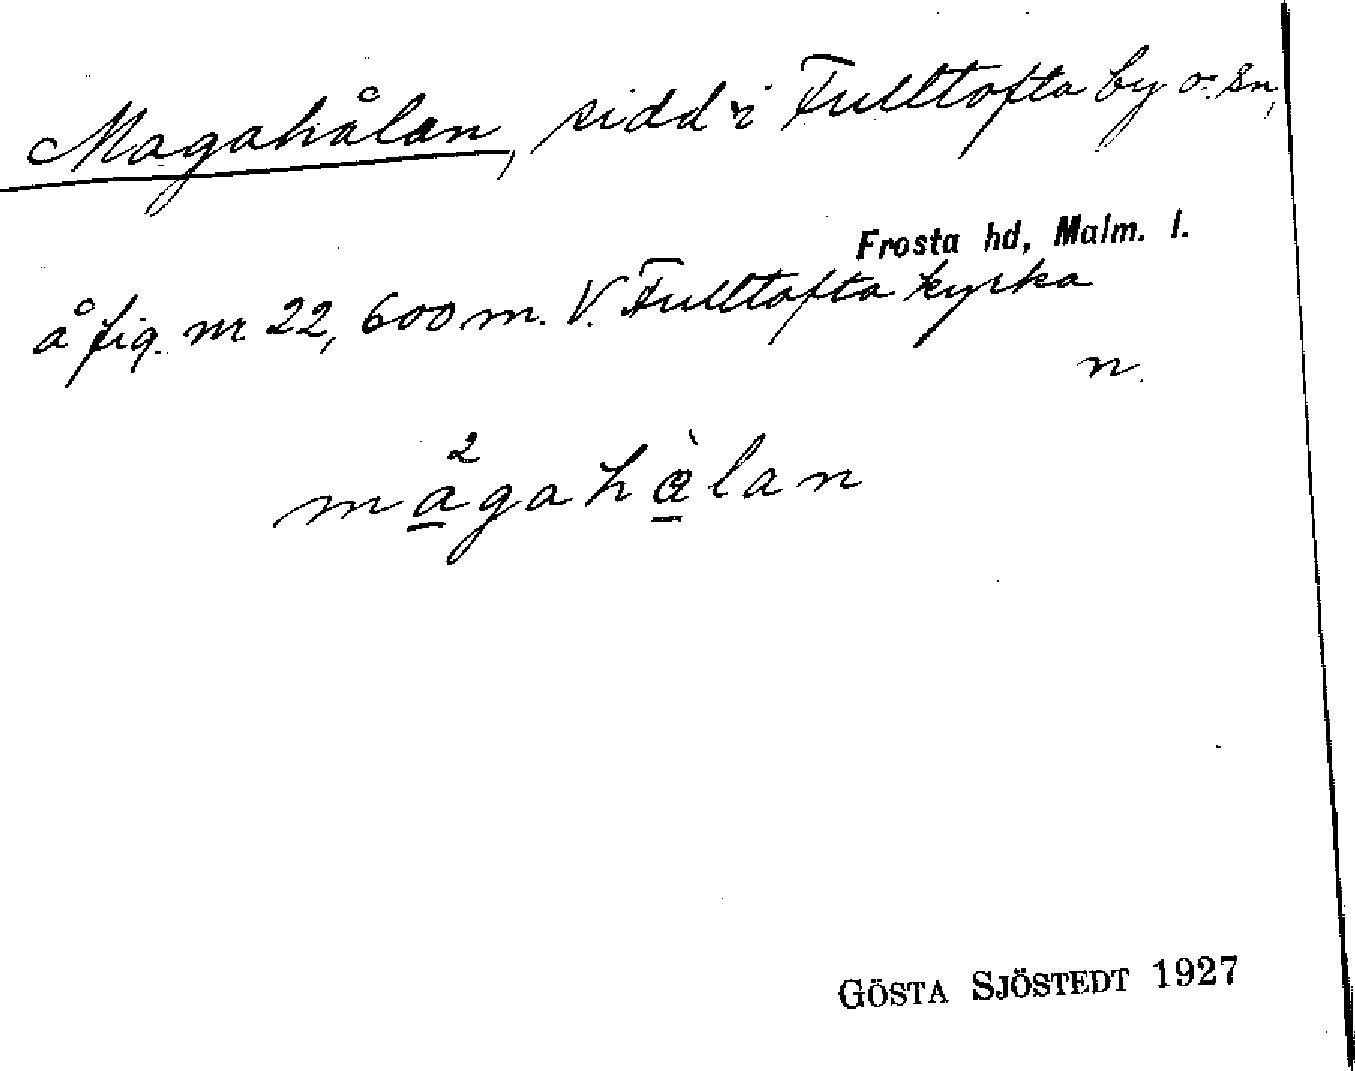 Magahålan, sidd i Fulltofta by o. sn,
Frosta hd, Malm. l.
å fig. nr 22, 600 m. V. Fulltofta kyrka
n.
2
magahàlan
GÖSTA SJÖSTEDT 1927